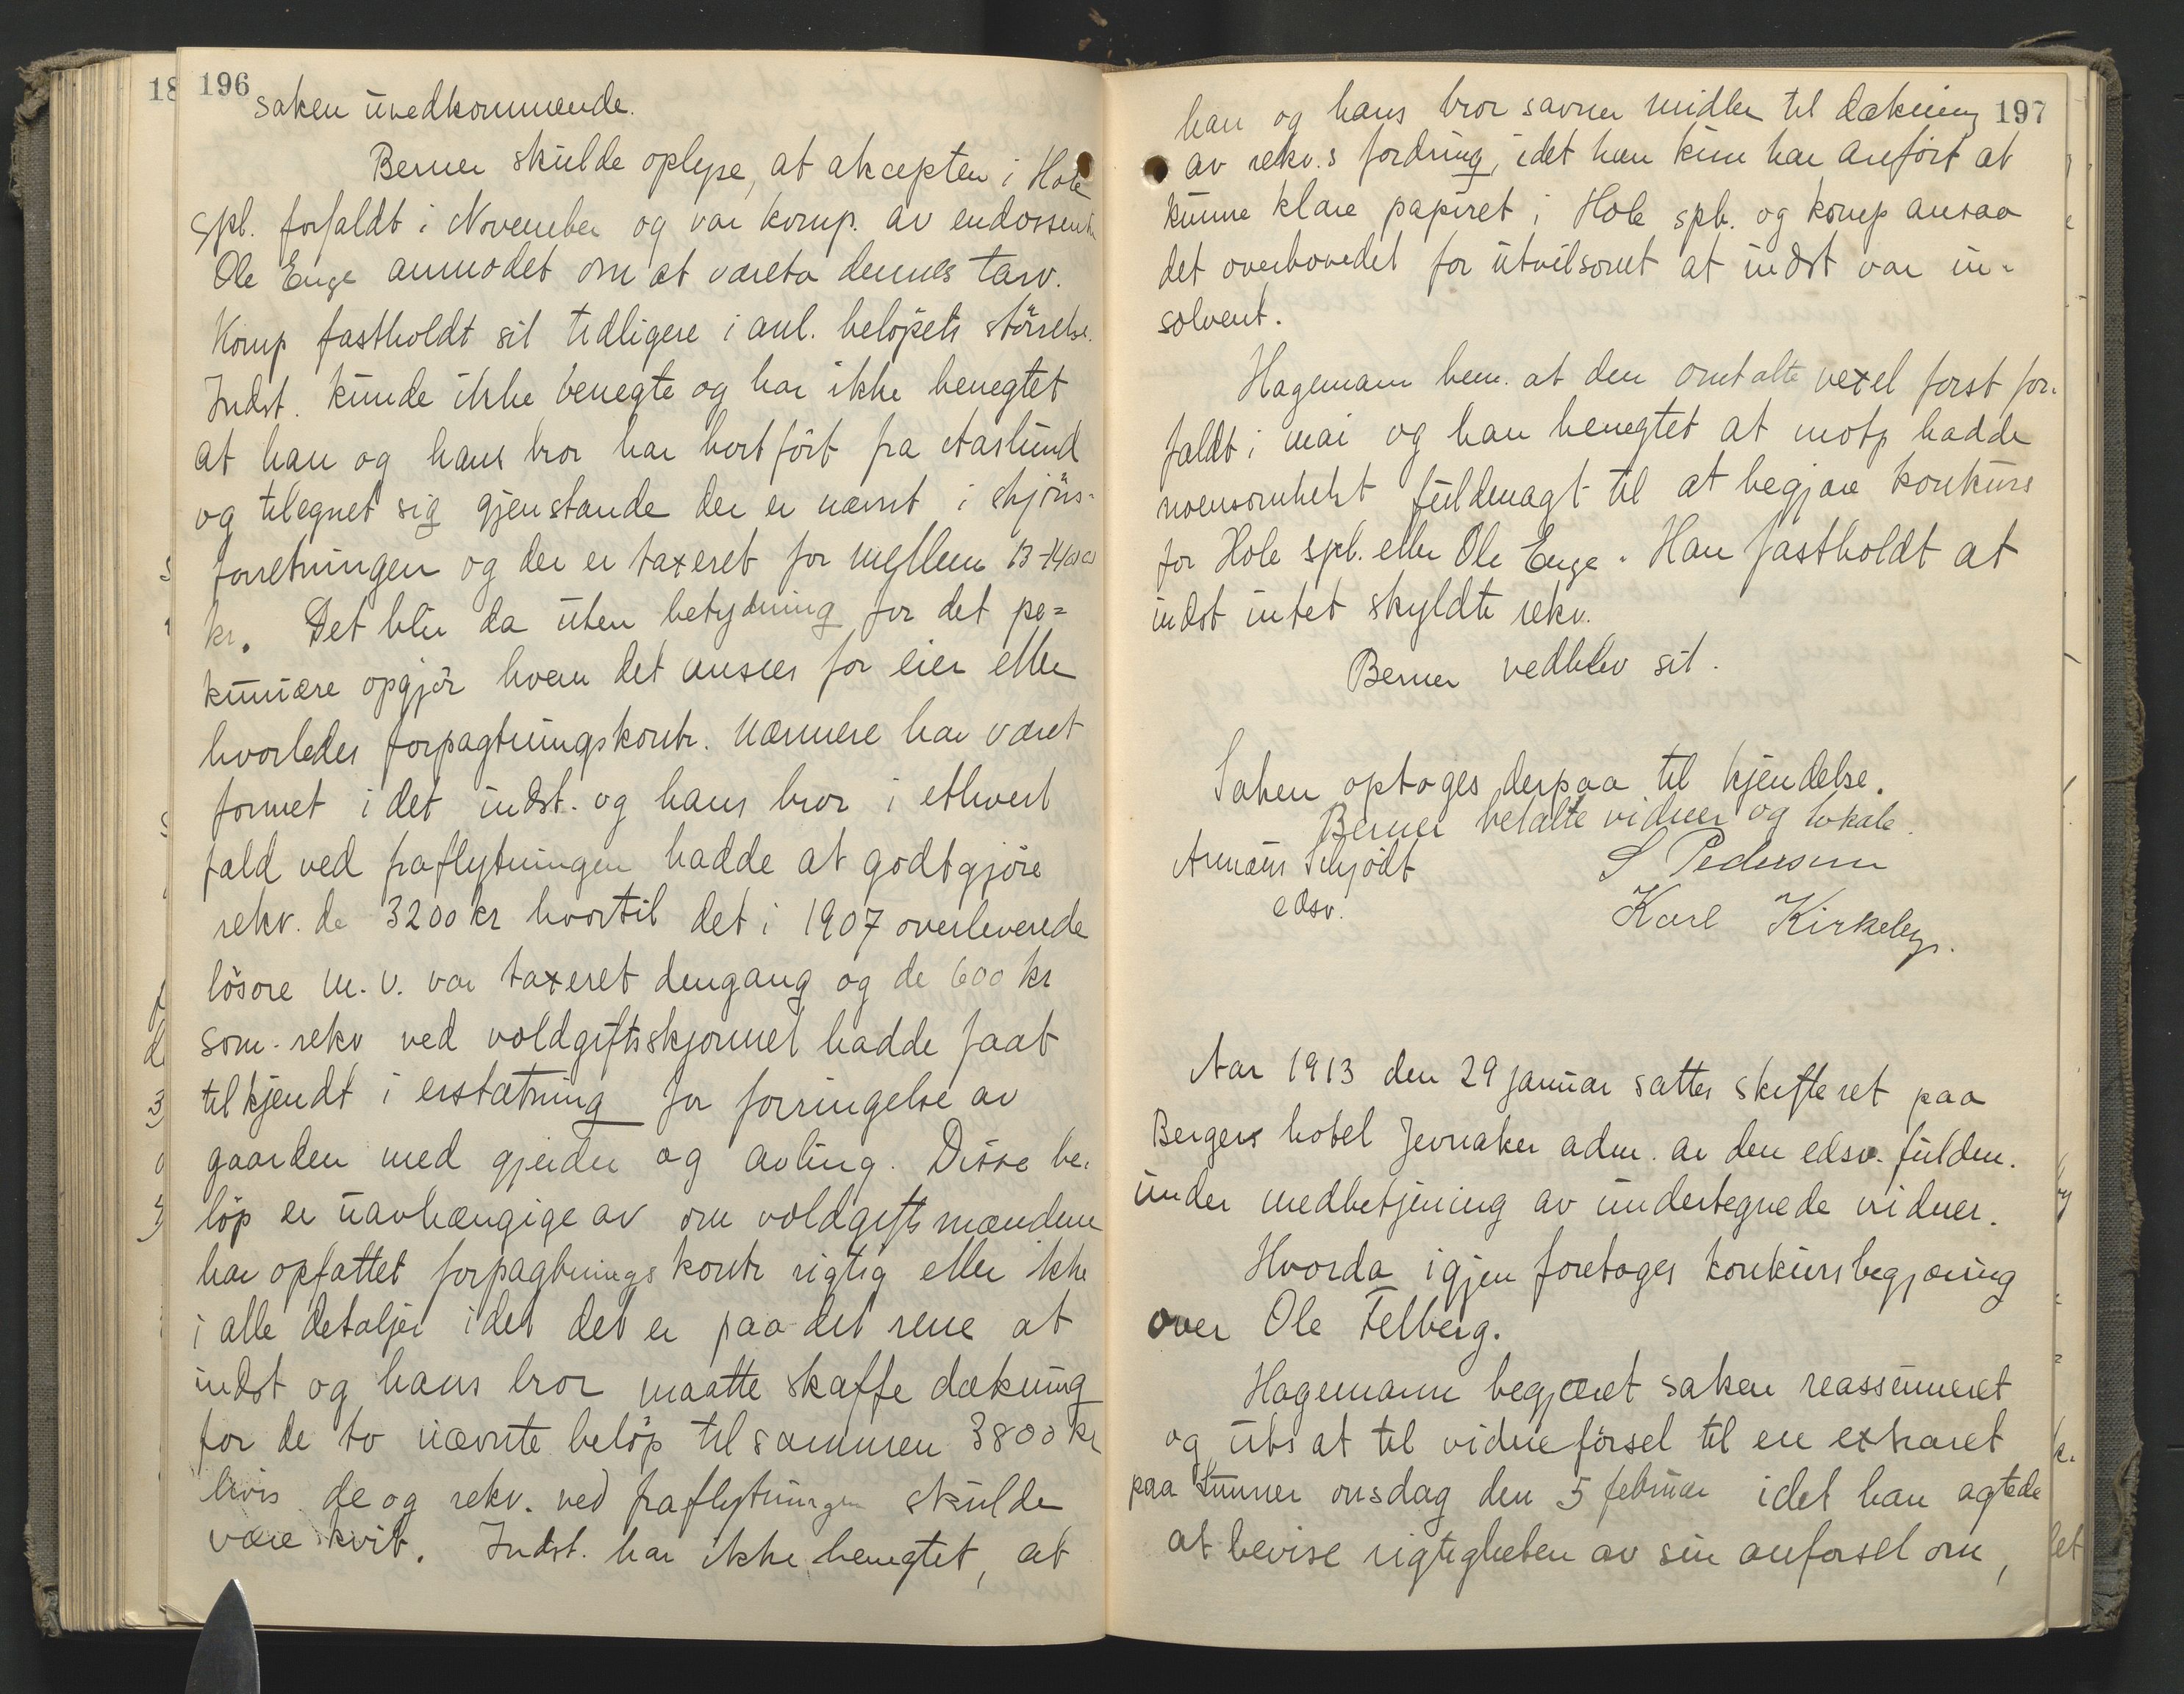 196
saken uvedkommende.
Berner skulde oplyse, at akcepten i Hole
spb. forfaldt i November og var komp. av endossenten
Ole Enge anmodet om at vareta dennes tarv.
Komp fastholdt sit tidligere i anl. beløpets størrelse.
Indst. kunde ikke benegte og har ikke benegtet
at han og hans bror har bortført fra Aaslund
og tilegnet sig gjenstande der er nævnt i skjøns-
forretningen og der er taxeret for mellem 13-14000
kr. Det blir da uten betydning for det pe=
kuniære opgjør hvem det ansees for eier eller
hvorledes forpagtningskontr. nærmere har været
formet idet indst. og hans bror i ethvert
fald ved fraflytningen hadde at godtgjøre
rekv. de 3200 kr hvortil det i 1907 overleverede
løsøre m.v. var taxeret dengang og de 600 kr
som rekv ved voldgiftsskjønnet hadde faat
tilkjendt i erstatning for forringelse av
gaarden med gjerder og avling. Disse be-
løp er uavhængige av om voldgiftsmændene
har opfattet forpagtningskontr rigtig eller ikke
i alle detaljer idet det er paa det rene at
indst og hans bror maatte skaffe dækning
for de to nævnte beløp tilsammen 3800 kr
hvis de og rekv. ved fraflytningen skulde
være kvit. Indst. har ikke benegtet, at
197
han og hans bror savner midler til dækning
av rekv.s fordring, idet han kun har anført at
kunne klare papiret i Hole spb. og komp ansaa
det overhovedet for utvilsomt at indst var in-
solvent.
Hagemann bem. at den omtalte vexel først for-
faldt i mai og han benegtet at motp hadde
noensomhelst fuldmagt til at begjære konkurs
for Hole spb. eller Ole Enge. Han fastholdt at
indst intet skyldte rekv.
Berner vedblev sit.
Saken optoges derpaa til kjendelse.
Berner betalte vidner og lokale.
Schjødt S Pedersen
edsv. Karl Kirkeby.
Aar 1913 den 29 januar sattes skifteret paa
Bergers hotel Jevnaker adm. av den edsv. fuldm.
under medbetjening av undertegnede vidner.
Hvorda igjen foretoges konkursbegjæring
over Ole Felberg.
Hagemann begjæret saken reassumeret
og utsat til vidneførsel til en extraret
paa Lunner onsdag den 5 februar idet han agtede
at bevise rigtigheten av sin anførsel om,